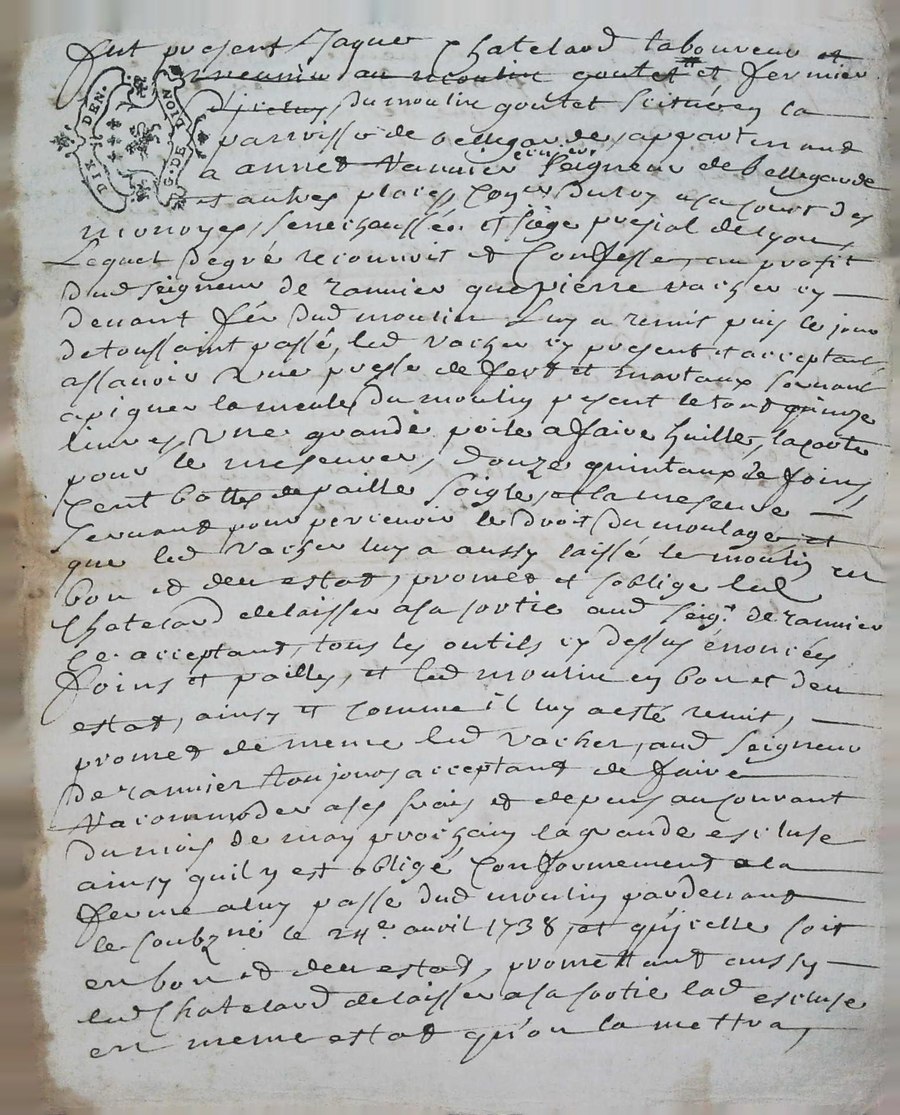 fut present Jaques Chatelard laboureur et
meunier au moulin goutet et fermier
DIX DEN. G. DE DIJON
d'iceluy du moulin goutet scittué en la
parroisse de bellegarde, appartenant
a annet Ranvier ecuyer Seigneur de bellegarde
et autres places, Coner du roy a sa court des
monoyes, senechaussée et siège presial de lyon,
Lequel de gré reconnoit et Confesse, au profit
dud seigneur de ranvier que pierre vacher cy
devant fér dud moulin luy a remit puis le jour
de toussaint passé, led vacher cy present et acceptant,
assavoir Une presse de fert et martaux servant
a piquer la meules du moulin pesent le tout quinze
livres, Une grande poile a faire huille, la
pour le mesurer, douze quintaux de foins,
Cent bottes de paille soigle, et la mesure
servant pour percevoir le droit du moulage et
que led vacher luy a aussy laissé le moulin en
bon et deu estat, promet et s'oblige led
Chatelard delaisser a sa sortie aud seigr de ranvier
ce acceptant, tous les outils cy dessus énoncées
foins et pailles, et led moulin en bon et deu
estat, ainsy et comme il luy a esté remit,
promet de meme led vacher, aud seigneur
de ranvier toujours acceptant de faire
racommoder a ses frais et depens au courant
du mois de may prochain la grande escluse
ainsy quil y est obligé Conformement a la
ferme a luy passe dud moulin pardevant
le soubzné le 24e avril 1738, et qu'icelle soit
en bon et deu estat, promettant aussy
led Chatelard delaisser a sa sortie lad escluse
en meme estat qu'on la mettra,